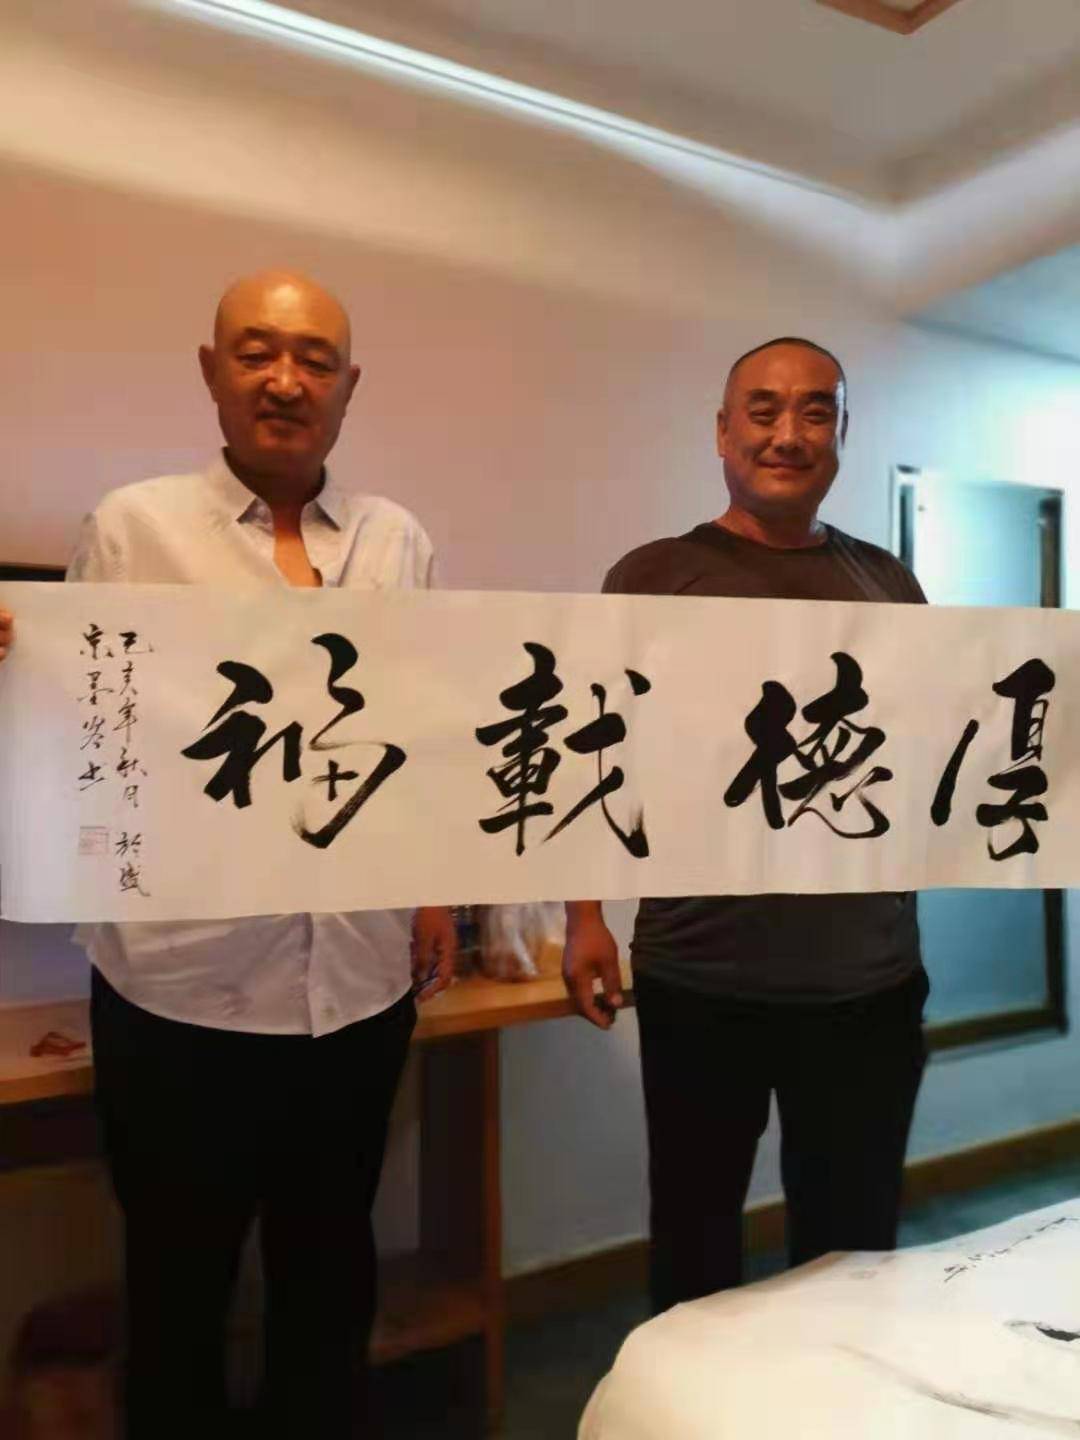 厚德載福
己亥年秋月於盛
京墨岑书